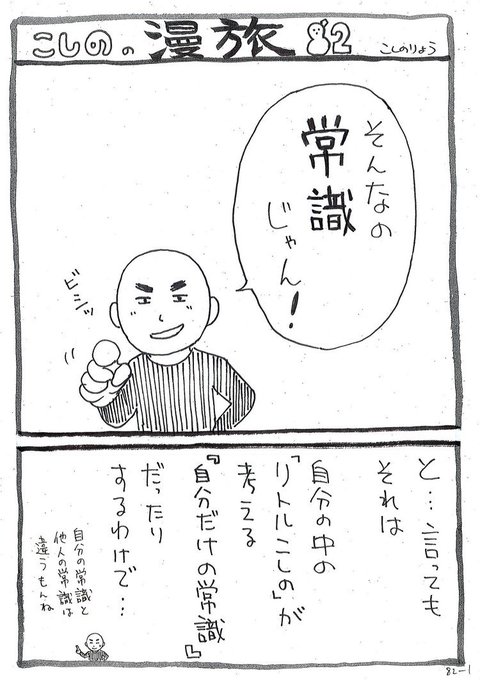 こしのの漫旅82
こしのりょう
そんなの
常識
じゃん!
ビシッ
と…言っても
それは
自分の中の
「リトルこしの」が
考える
『自分だけの常識』
だったり
するわけで…
自分の常識と
他人の常識は
違うもんね
82-1